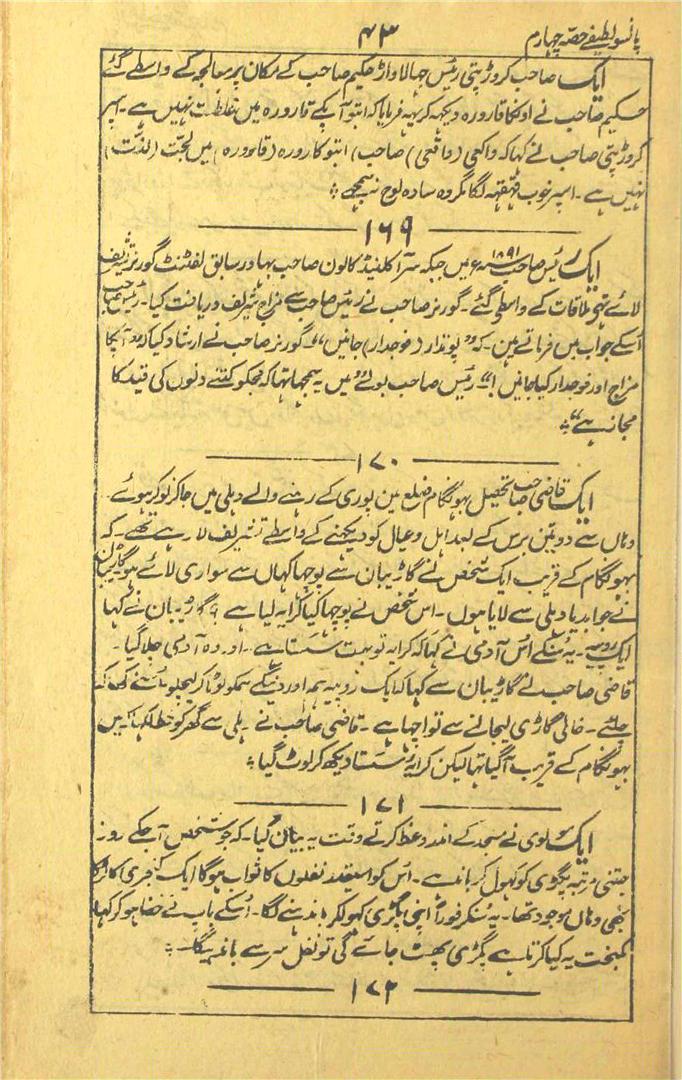 پانسو لطیفے حصّہ چہارم
۴۳
ایک صاحب کروڑ پتی رئیس جہالا واڑ حکیم صاحب کے مکان پر معالجہ کے واسطے گئے
حکیم صاحب نے اونکا قارورہ دیکھہ کر یہہ فرمایا کہ ابتو آپکے قارورہ میں غلظت نہیں ہے۔ اسپر
کروڑ پتی صاحب نے کہا کہ واکعی (واقعی) صاحب) ابتو کارورہ (قارورہ) میں لجّت (لذّت)
نہیں ہے۔ اسپر خوب قہقہہ لگا مگر وہ سادہ لوح نہ سمجھے ؞
۱۶۹
ایک رئیس صاحب ۱۸۹۱ء میں جبکہ سر آکلنیڈ کالون صاحب بہادر سابق لفٹنٹ گورنر تشریف
لائے تہے ملاقات کے واسطی گئے۔ گورنر صاحب نے رئیس صاحب سے مزاج شریف دریافت کیا۔ رئیس صاحب
اُسکے جواب میں فرماتے ہیں۔ کہ ”پوندار (فوجدار) جانیں“۔ گورنر صاحب نے ارشاد کیا کہ ”آپکا
مزاج اور فوجدار کیا جانیں“ رئیس صاحب بولے ”میں یہ سمجہا تہا کہ مجکو کتنے دنوں کی قید کا
مجاز ہے“ ؞
۱۷۰
ایک قاضی صاحب تحصیل بہونگام ضلع مین پوری کے رہنے والے دہلی میں جاکر نوکر ہوئے
وہاں سے دو تین برس کے بعد اہل و عیال کو دیکہنے کے واسطے تشریف لا رہے تھے۔ کہ
بہونگام کے قریب ایک شخص نے گاڑیبان سے پوچہا کہاں سے سواری لائے ہو گاڑیبان
نے جوابدیا دہلی سے لایا ہوں۔ اس شخص نے پوچہا کیا کرایہ لیا ہے؟ گاڑیبان نے کہا
ایک روپیہ۔ یہ سُنکے اُس آدمی نے کہا کہ کرایہ تو بہت سستا ہے۔ اور وہ آدمی چلا گیا۔
قاضی صاحب نے گاڑیبان سے کہا کہ ایک روپیہ ہم اور دینگے ہمکو لوٹا کر لیچلو
چلئے۔ خالی گاڑی لیجانے سے تو اچہا ہے۔ قاضی صاحب نے دہلی سے گھر کو خط لکہا کہ میں
بہونگام کے قریب آگیا تہا لیکن کرایہ سستا دیکھ کر لوٹ گیا ؞
۱۷۱
ایک مولوی نے مسجد کے اندر وعظ کرتے وقت یہ بیان کیا۔ کہ جو شخص آجکے روز
جتنی مرتبہ پگڑی کو کہول کر باندہے۔ اُس کو اسیقدر نفلوں کا ثواب ہوگا ایک کنجڑی کا لڑکا
بھی وہاں موجود تھا۔ یہ سُنکر فوراً اپنی پگڑی کہولکر باندہنے لگا۔ اُسکے باپ نے خفا ہوکر کہا
کمبخت یہ کیا کرتا ہے پگڑی پھٹ جائے گی تو نفل سر سے باندہیگا۔ ؞
۱۷۲